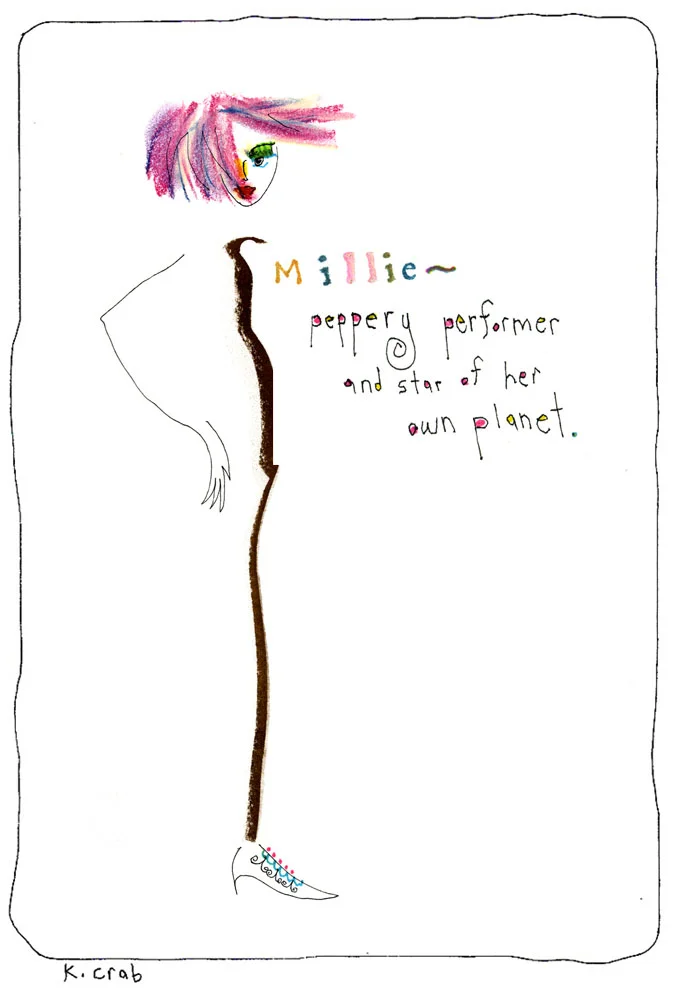 Millie~
peppery performer
and star of her
own planet.
K. Crab